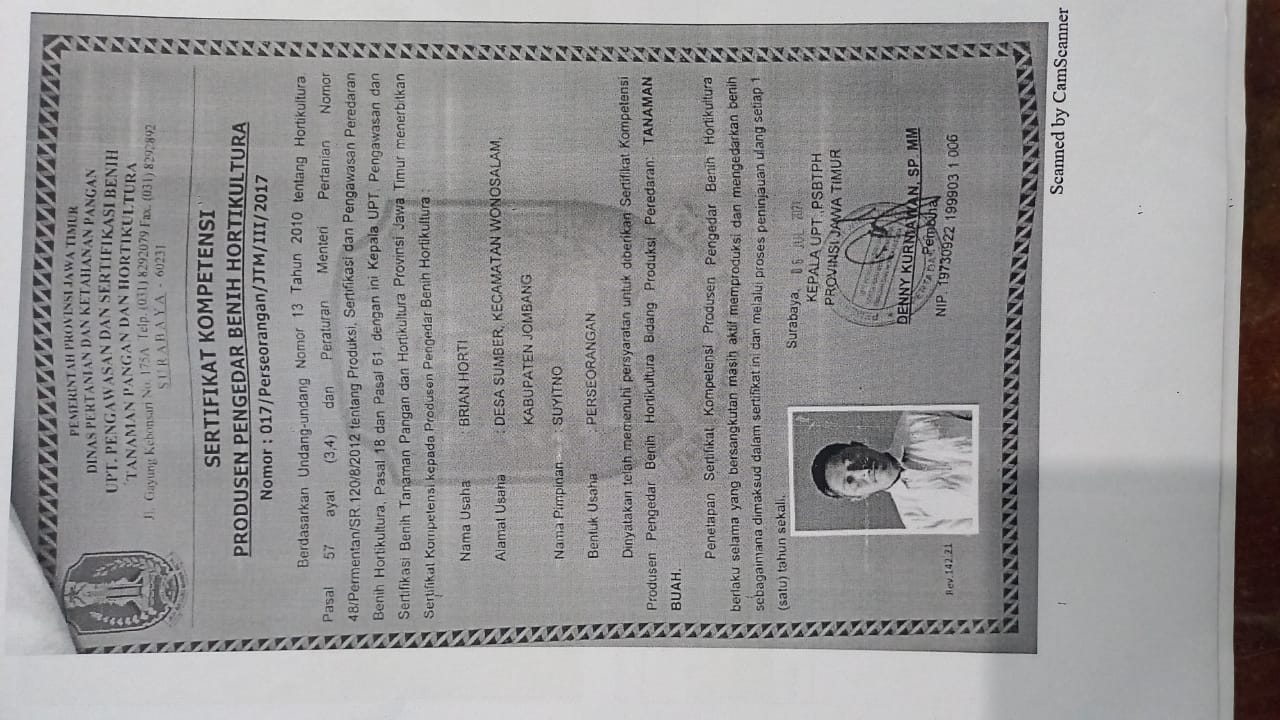 PEMERINTAH PROVINSI JAWA TIMUR
DINAS PERTANIAN DAN KETAHANAN PANGAN
UPT. PENGAWASAN DAN SERTIFIKASI BENIH
TANAMAN PANGAN DAN HORTIKULTURA
Jl. Gayung Kebonsari No. 175A Telp. (031) 8292079 Fax. (031) 8292892
SURABAYA - 60231
SERTIFIKAT KOMPETENSI
PRODUSEN PENGEDAR BENIH HORTIKULTURA
Nomor : 017/Perseorangan/JTM/III/2017
Berdasarkan Undang-undang Nomor 13 Tahun 2010 tentang Hortikultura
Pasal 57 ayat (3,4) dan Peraturan Menteri Pertanian Nomor
48/Permentan/SR.120/8/2012 tentang Produksi, Sertifikasi dan Pengawasan Peredaran
Benih Hortikultura, Pasal 18 dan Pasal 61, dengan ini Kepala UPT. Pengawasan dan
Sertifikasi Benih Tanaman Pangan dan Hortikultura Provinsi Jawa Timur menerbitkan
Sertifikat Kompetensi kepada Produsen Pengedar Benih Hortikultura :
Nama Usaha : BRIAN HORTI
Alamat Usaha : DESA SUMBER, KECAMATAN WONOSALAM,
KABUPATEN JOMBANG
Nama Pimpinan : SUYITNO
Bentuk Usaha : PERSEORANGAN
Dinyatakan telah memenuhi persyaratan untuk diberikan Sertifikat Kompetensi
Produsen Pengedar Benih Hortikultura Bidang Produksi Peredaran: TANAMAN
BUAH.
Penetapan Sertifikat Kompetensi Produsen Pengedar Benih Hortikultura
berlaku selama yang bersangkutan masih aktif memproduksi dan mengedarkan benih
sebagaimana dimaksud dalam sertifikat ini dan melalui proses peninjauan ulang setiap 1
(satu) tahun sekali.
Surabaya, 06 JUL 2021
KEPALA UPT. PSBTPH
PROVINSI JAWA TIMUR
DENNY KURNIAWAN, SP. MM
Pembina
NIP. 19730922 199903 1 006
Rev.142.21
Scanned by CamScanner